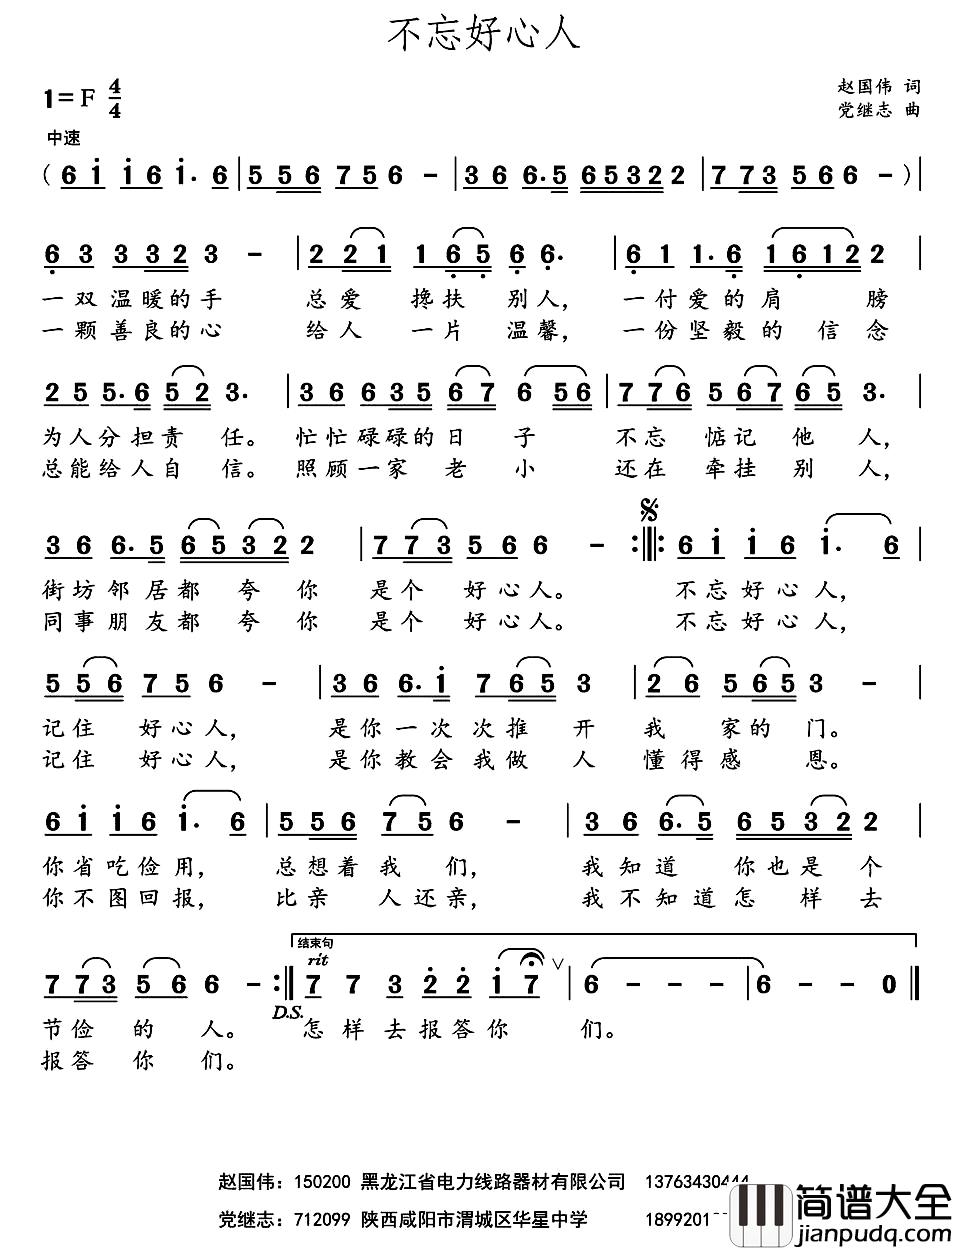 不忘好心人
1=F 4/4
赵国伟 词
党继志 曲
中速
( 6 i i 6 i. 6 | 5 5 6 7 5 6 - | 3 6 6. 5 6 5 3 2 2 | 7 7 3 5 6 6 - ) |
6 3 3 3 2 3 - | 2 2 1 1 6 5 6 6. | 6 1 1. 6 1 6 1 2 2 |
一双温暖的手 总爱 搀扶 别人, 一付爱的肩 膀
一颗善良的心 给人 一片 温馨, 一份坚毅的 信念
2 5 5. 6 5 2 3. | 3 6 6 3 5 6 7 6 5 6 | 7 7 6 5 6 7 6 5 3. |
为人分担责 任。 忙忙碌碌的日 子 不忘 惦记 他 人,
总能给人自 信。 照顾一家 老 小 还在 牵挂 别 人,
3 6 6. 5 6 5 3 2 2 | 7 7 3 5 6 6 - :‖: 6 i i 6 i. 6
街坊邻居都 夸 你 是个 好心人。 不忘好心人,
同事朋友都 夸 你 是个 好心人。 不忘好心人,
5 5 6 7 5 6 - | 3 6 6. i 7 6 5 3 | 2 6 5 6 5 3 - |
记住 好心人, 是你一次次推 开 我 家的 门。
记住 好心人, 是你教会我做 人 懂得感 恩。
6 i i 6 i. 6 | 5 5 6 7 5 6 - | 3 6 6. 5 6 5 3 2 2 |
你省吃俭用, 总想着我 们, 我知道 你也是个
你不图回报, 比亲 人还亲, 我不知道怎 样去
结束句
rit
7 7 3 5 6 6 - :‖ 7 7 3 2 2 i 7 ∨ | 6 - - - | 6 - - 0 ‖
D.S.
节俭 的 人。 怎样去报答你 们。
报答 你 们。
赵国伟：150200 黑龙江省电力线路器材有限公司 13763430444
党继志：712099 陕西咸阳市渭城区华星中学 1899201
简谱大全
jianpudq.com